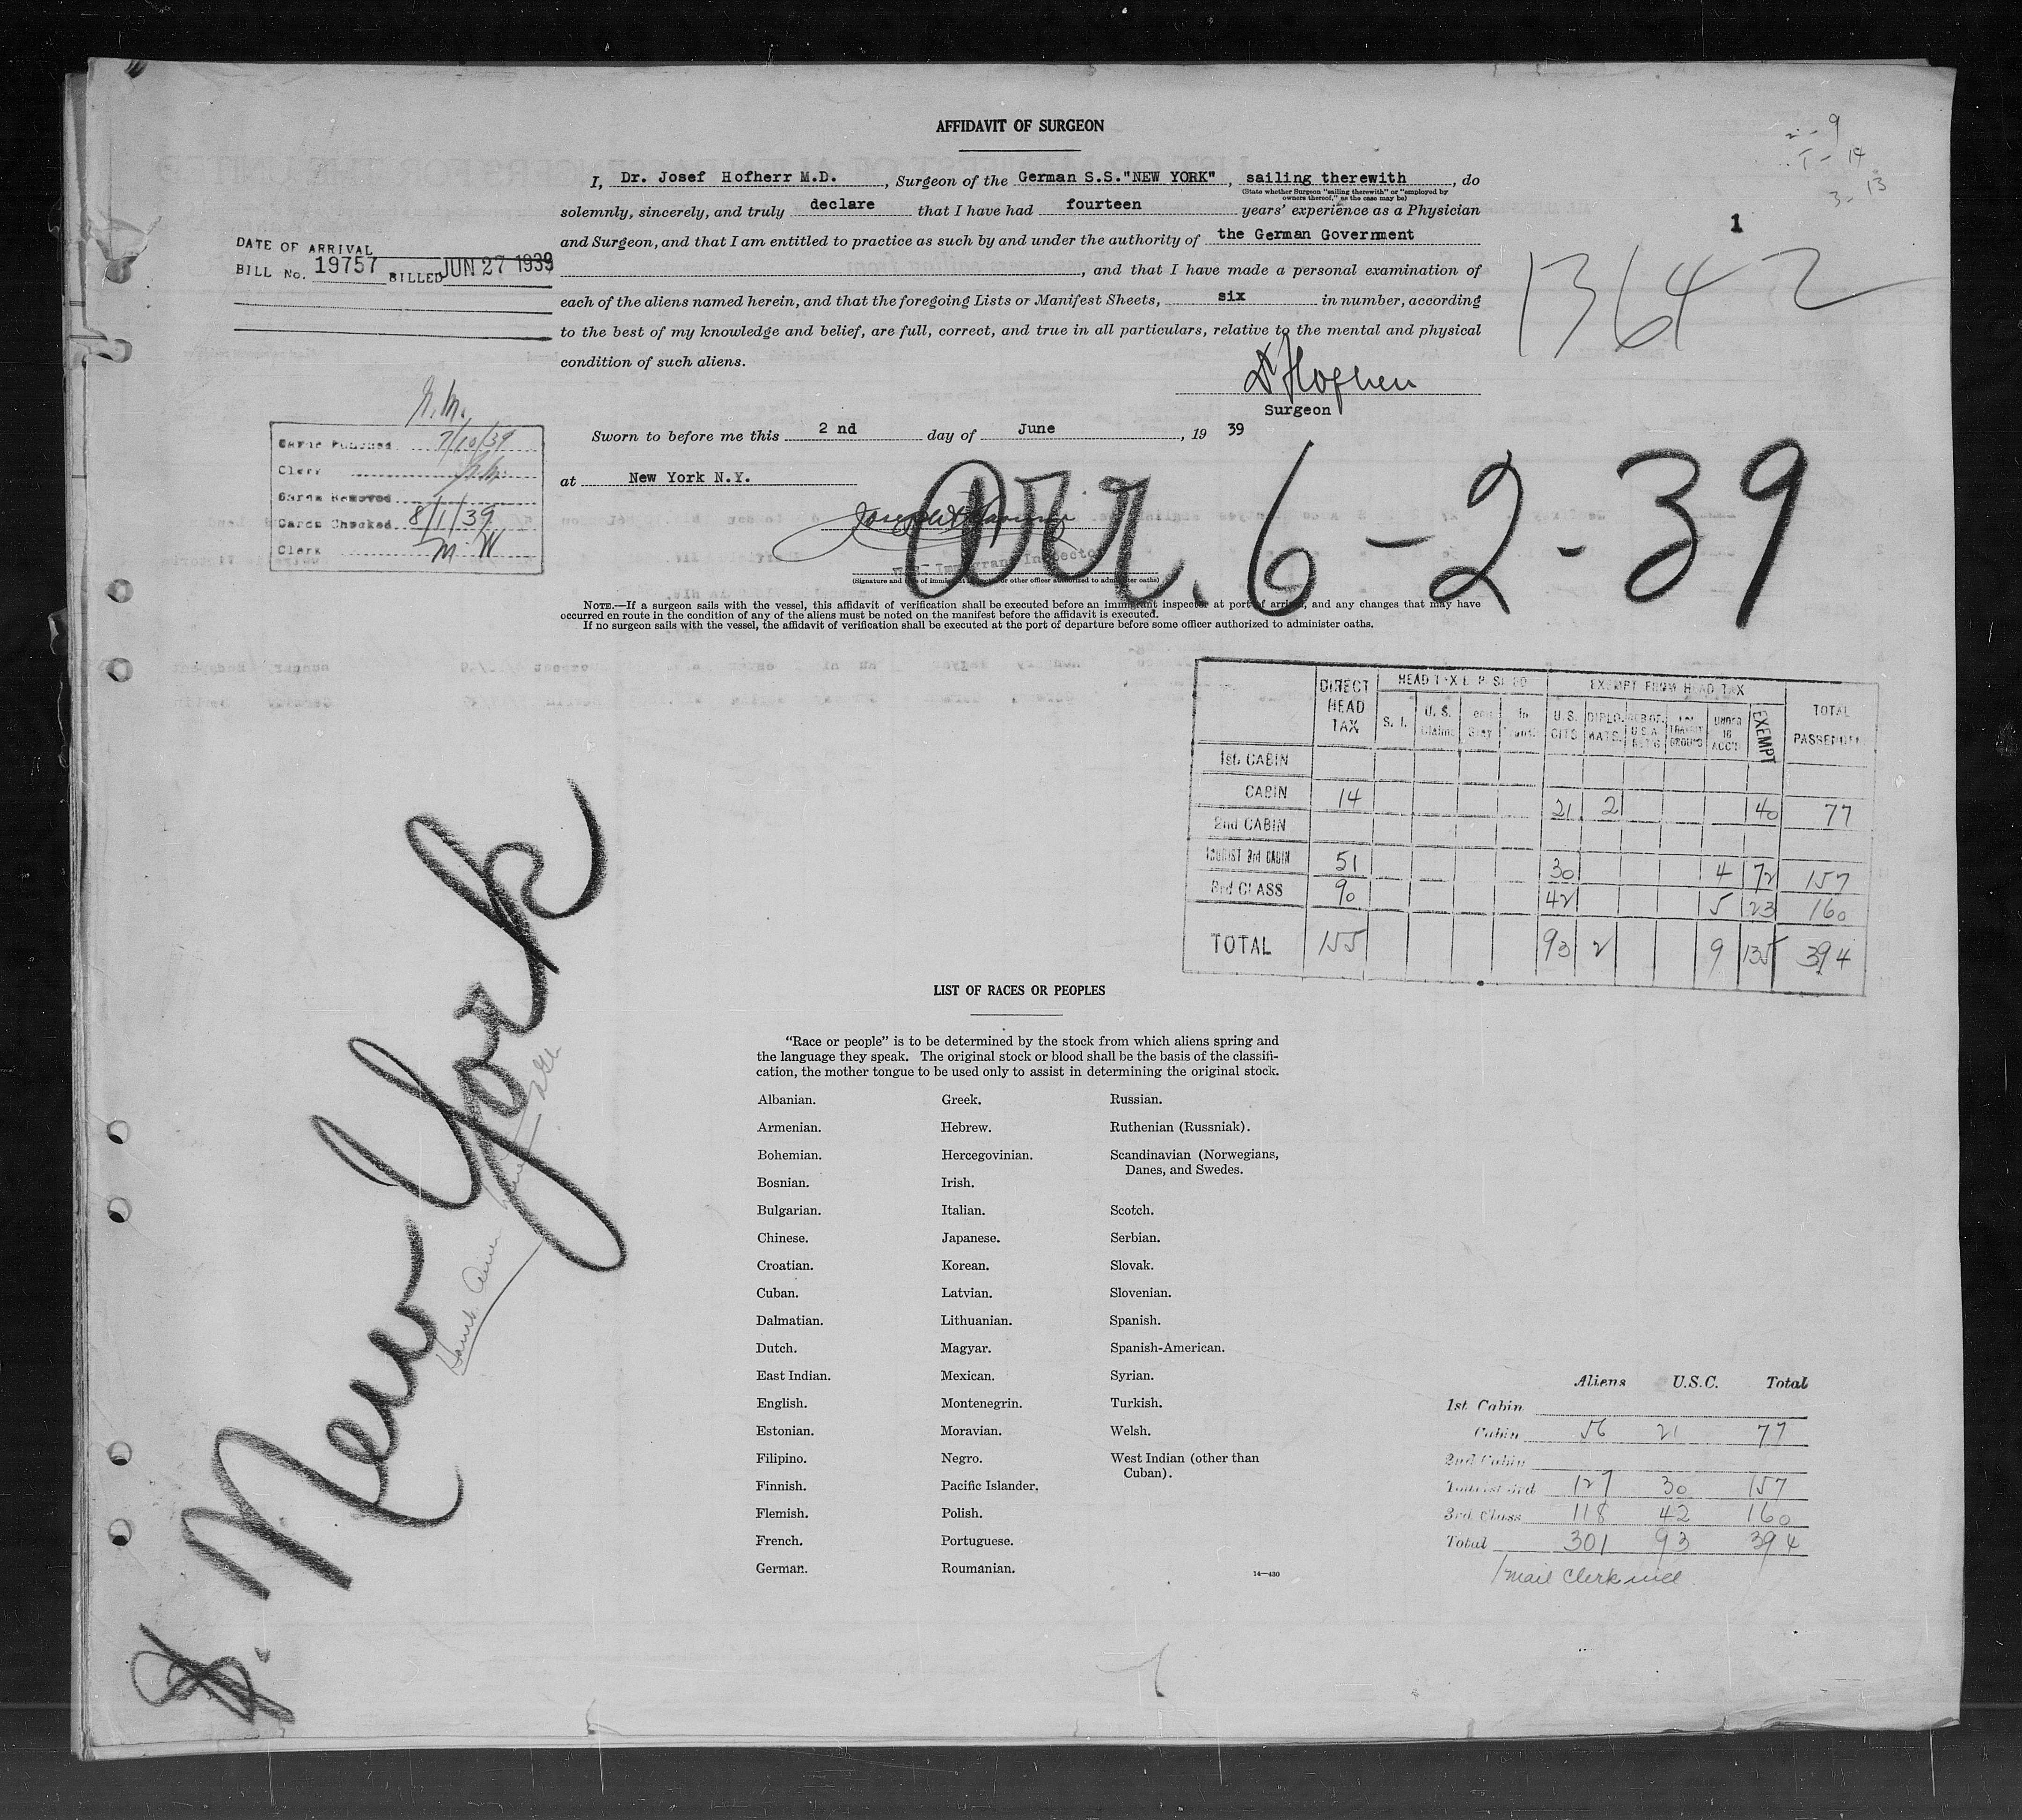 AFFIDAVIT OF SURGEON
2 - 9
T - 14
3 - 13
1
1364 2
I, Dr. Josef Hofherr M.D. , Surgeon of the German S.S."NEW YORK" , sailing therewith , do
(State whether Surgeon "sailing therewith" or "employed by
owners thereof," as the case may be)
solemnly, sincerely, and truly declare that I have had fourteen years' experience as a Physician
and Surgeon, and that I am entitled to practice as such by and under the authority of the German Government
, and that I have made a personal examination of
each of the aliens named herein, and that the foregoing Lists or Manifest Sheets, six in number, according
to the best of my knowledge and belief, are full, correct, and true in all particulars, relative to the mental and physical
condition of such aliens.
DATE OF ARRIVAL
BILL No. 19757 BILLED JUN 27 1939
Dr Hofherr
Surgeon
Sworn to before me this 2 nd day of June , 19 39
at New York N.Y.
arr. 6-2-39
Immigrant Inspector
(Signature and title of immigrant inspector or other officer authorized to administer oaths)
Cards Punched 7/10/39
Clerk
Cards Removed
Cards Checked 8/1/39
Clerk M W
NOTE.—If a surgeon sails with the vessel, this affidavit of verification shall be executed before an immigrant inspector at port of arrival, and any changes that may have
occurred en route in the condition of any of the aliens must be noted on the manifest before the affidavit is executed.
If no surgeon sails with the vessel, the affidavit of verification shall be executed at the port of departure before some officer authorized to administer oaths.
DIRECT HEAD TAX
EXEMPT FROM HEAD TAX
S. I. U. S. Claims U. S. CITS DIPLO-MATS. UNDER 16 ACC'D EXEMPT TOTAL PASSENGER
1st. CABIN
CABIN 14 21 2 40 77
2nd CABIN
TOURIST 3rd CABIN 51 30 4 72 157
3rd CLASS 90 42 5 23 160
TOTAL 155 93 2 9 135 394
S. New York
LIST OF RACES OR PEOPLES
"Race or people" is to be determined by the stock from which aliens spring and
the language they speak. The original stock or blood shall be the basis of the classifi-
cation, the mother tongue to be used only to assist in determining the original stock.
Albanian.
Armenian.
Bohemian.
Bosnian.
Bulgarian.
Chinese.
Croatian.
Cuban.
Dalmatian.
Dutch.
East Indian.
English.
Estonian.
Filipino.
Finnish.
Flemish.
French.
German.
Greek.
Hebrew.
Hercegovinian.
Irish.
Italian.
Japanese.
Korean.
Latvian.
Lithuanian.
Magyar.
Mexican.
Montenegrin.
Moravian.
Negro.
Pacific Islander.
Polish.
Portuguese.
Roumanian.
Russian.
Ruthenian (Russniak).
Scandinavian (Norwegians,
Danes, and Swedes.
Scotch.
Serbian.
Slovak.
Slovenian.
Spanish.
Spanish-American.
Syrian.
Turkish.
Welsh.
West Indian (other than
Cuban).
14—430
Aliens U.S.C. Total
1st Cabin
Cabin 56 21 77
2nd Cabin
Tourist 3rd 127 30 157
3rd Class 118 42 160
Total 301 93 394
1 mail Clerk